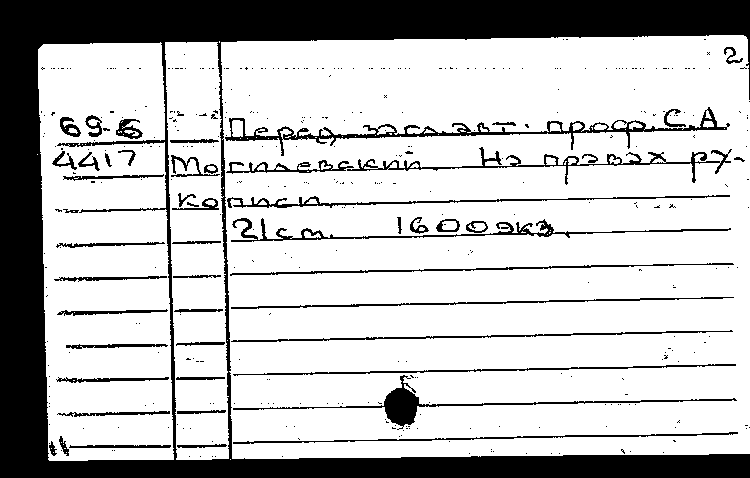 2
69-5 Перед загл. авт. проф. С.А.
4417 Могилевский. На правах ру-
кописи.
21 см. 1600 экз.